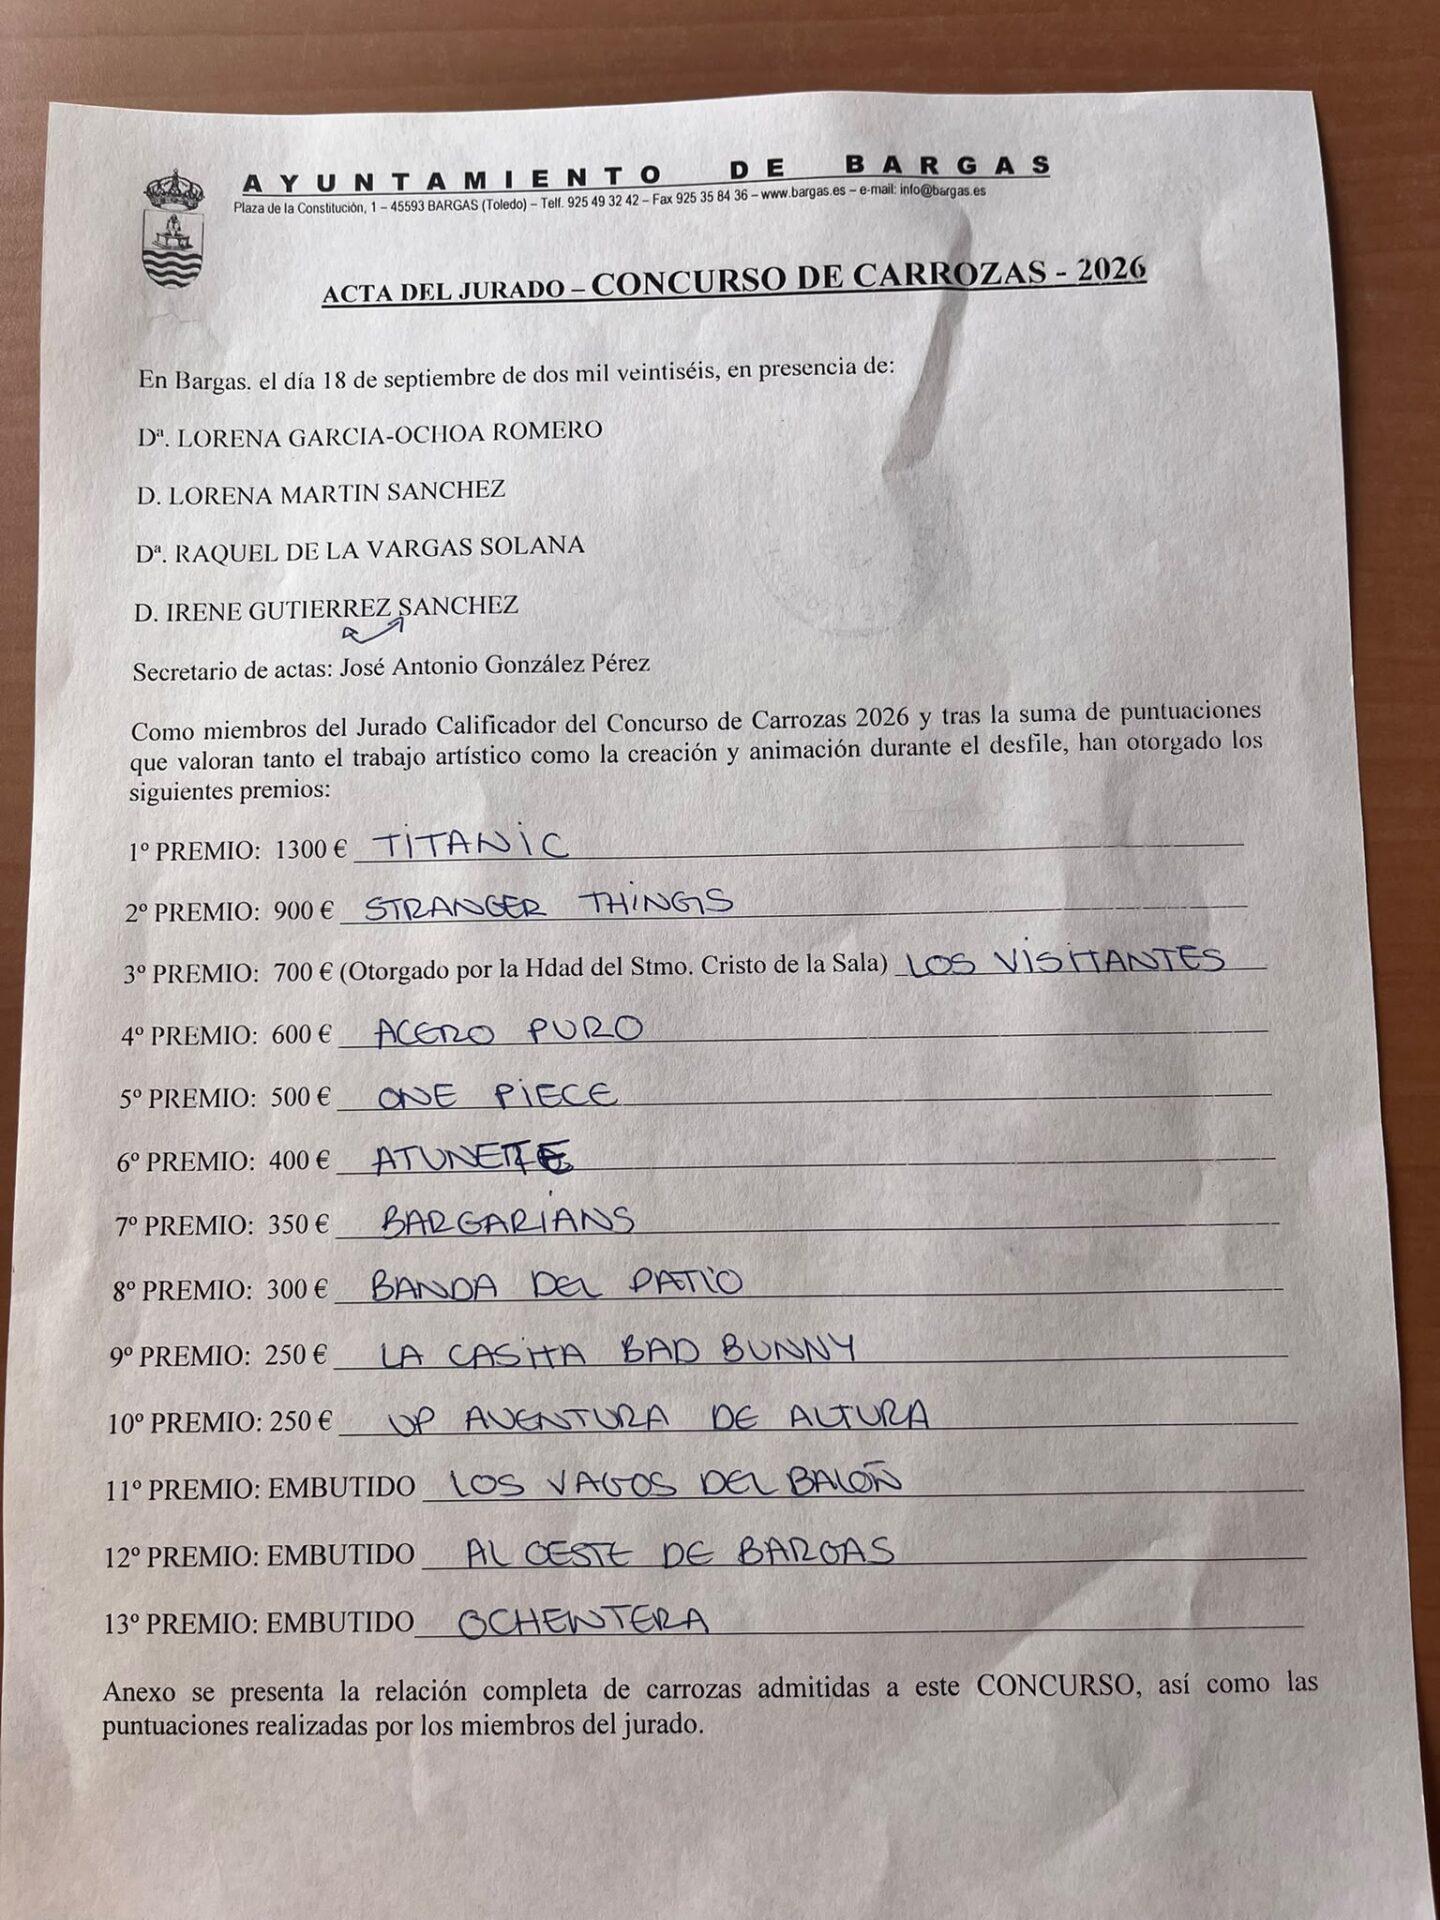 AYUNTAMIENTO DE BARGAS
Plaza de la Constitución, 1 – 45593 BARGAS (Toledo) – Telf. 925 49 32 42 – Fax 925 35 84 36 – www.bargas.es – e-mail: info@bargas.es
ACTA DEL JURADO – CONCURSO DE CARROZAS - 2026
En Bargas. el día 18 de septiembre de dos mil veintiséis, en presencia de:
Dª. LORENA GARCIA-OCHOA ROMERO
D. LORENA MARTIN SANCHEZ
Dª. RAQUEL DE LA VARGAS SOLANA
D. IRENE GUTIERREZ SANCHEZ
Secretario de actas: José Antonio González Pérez
Como miembros del Jurado Calificador del Concurso de Carrozas 2026 y tras la suma de puntuaciones
que valoran tanto el trabajo artístico como la creación y animación durante el desfile, han otorgado los
siguientes premios:
1º PREMIO: 1300 € TITANIC
2º PREMIO: 900 € STRANGER THINGS
3º PREMIO: 700 € (Otorgado por la Hdad del Stmo. Cristo de la Sala) LOS VISITANTES
4º PREMIO: 600 € ACERO PURO
5º PREMIO: 500 € ONE PIECE
6º PREMIO: 400 € ATUNETE
7º PREMIO: 350 € BARGARIANS
8º PREMIO: 300 € BANDA DEL PATIO
9º PREMIO: 250 € LA CASITA BAD BUNNY
10º PREMIO: 250 € UP AVENTURA DE ALTURA
11º PREMIO: EMBUTIDO LOS VAGOS DEL BALOÑ
12º PREMIO: EMBUTIDO AL OESTE DE BARGAS
13º PREMIO: EMBUTIDO OCHENTERA
Anexo se presenta la relación completa de carrozas admitidas a este CONCURSO, así como las
puntuaciones realizadas por los miembros del jurado.